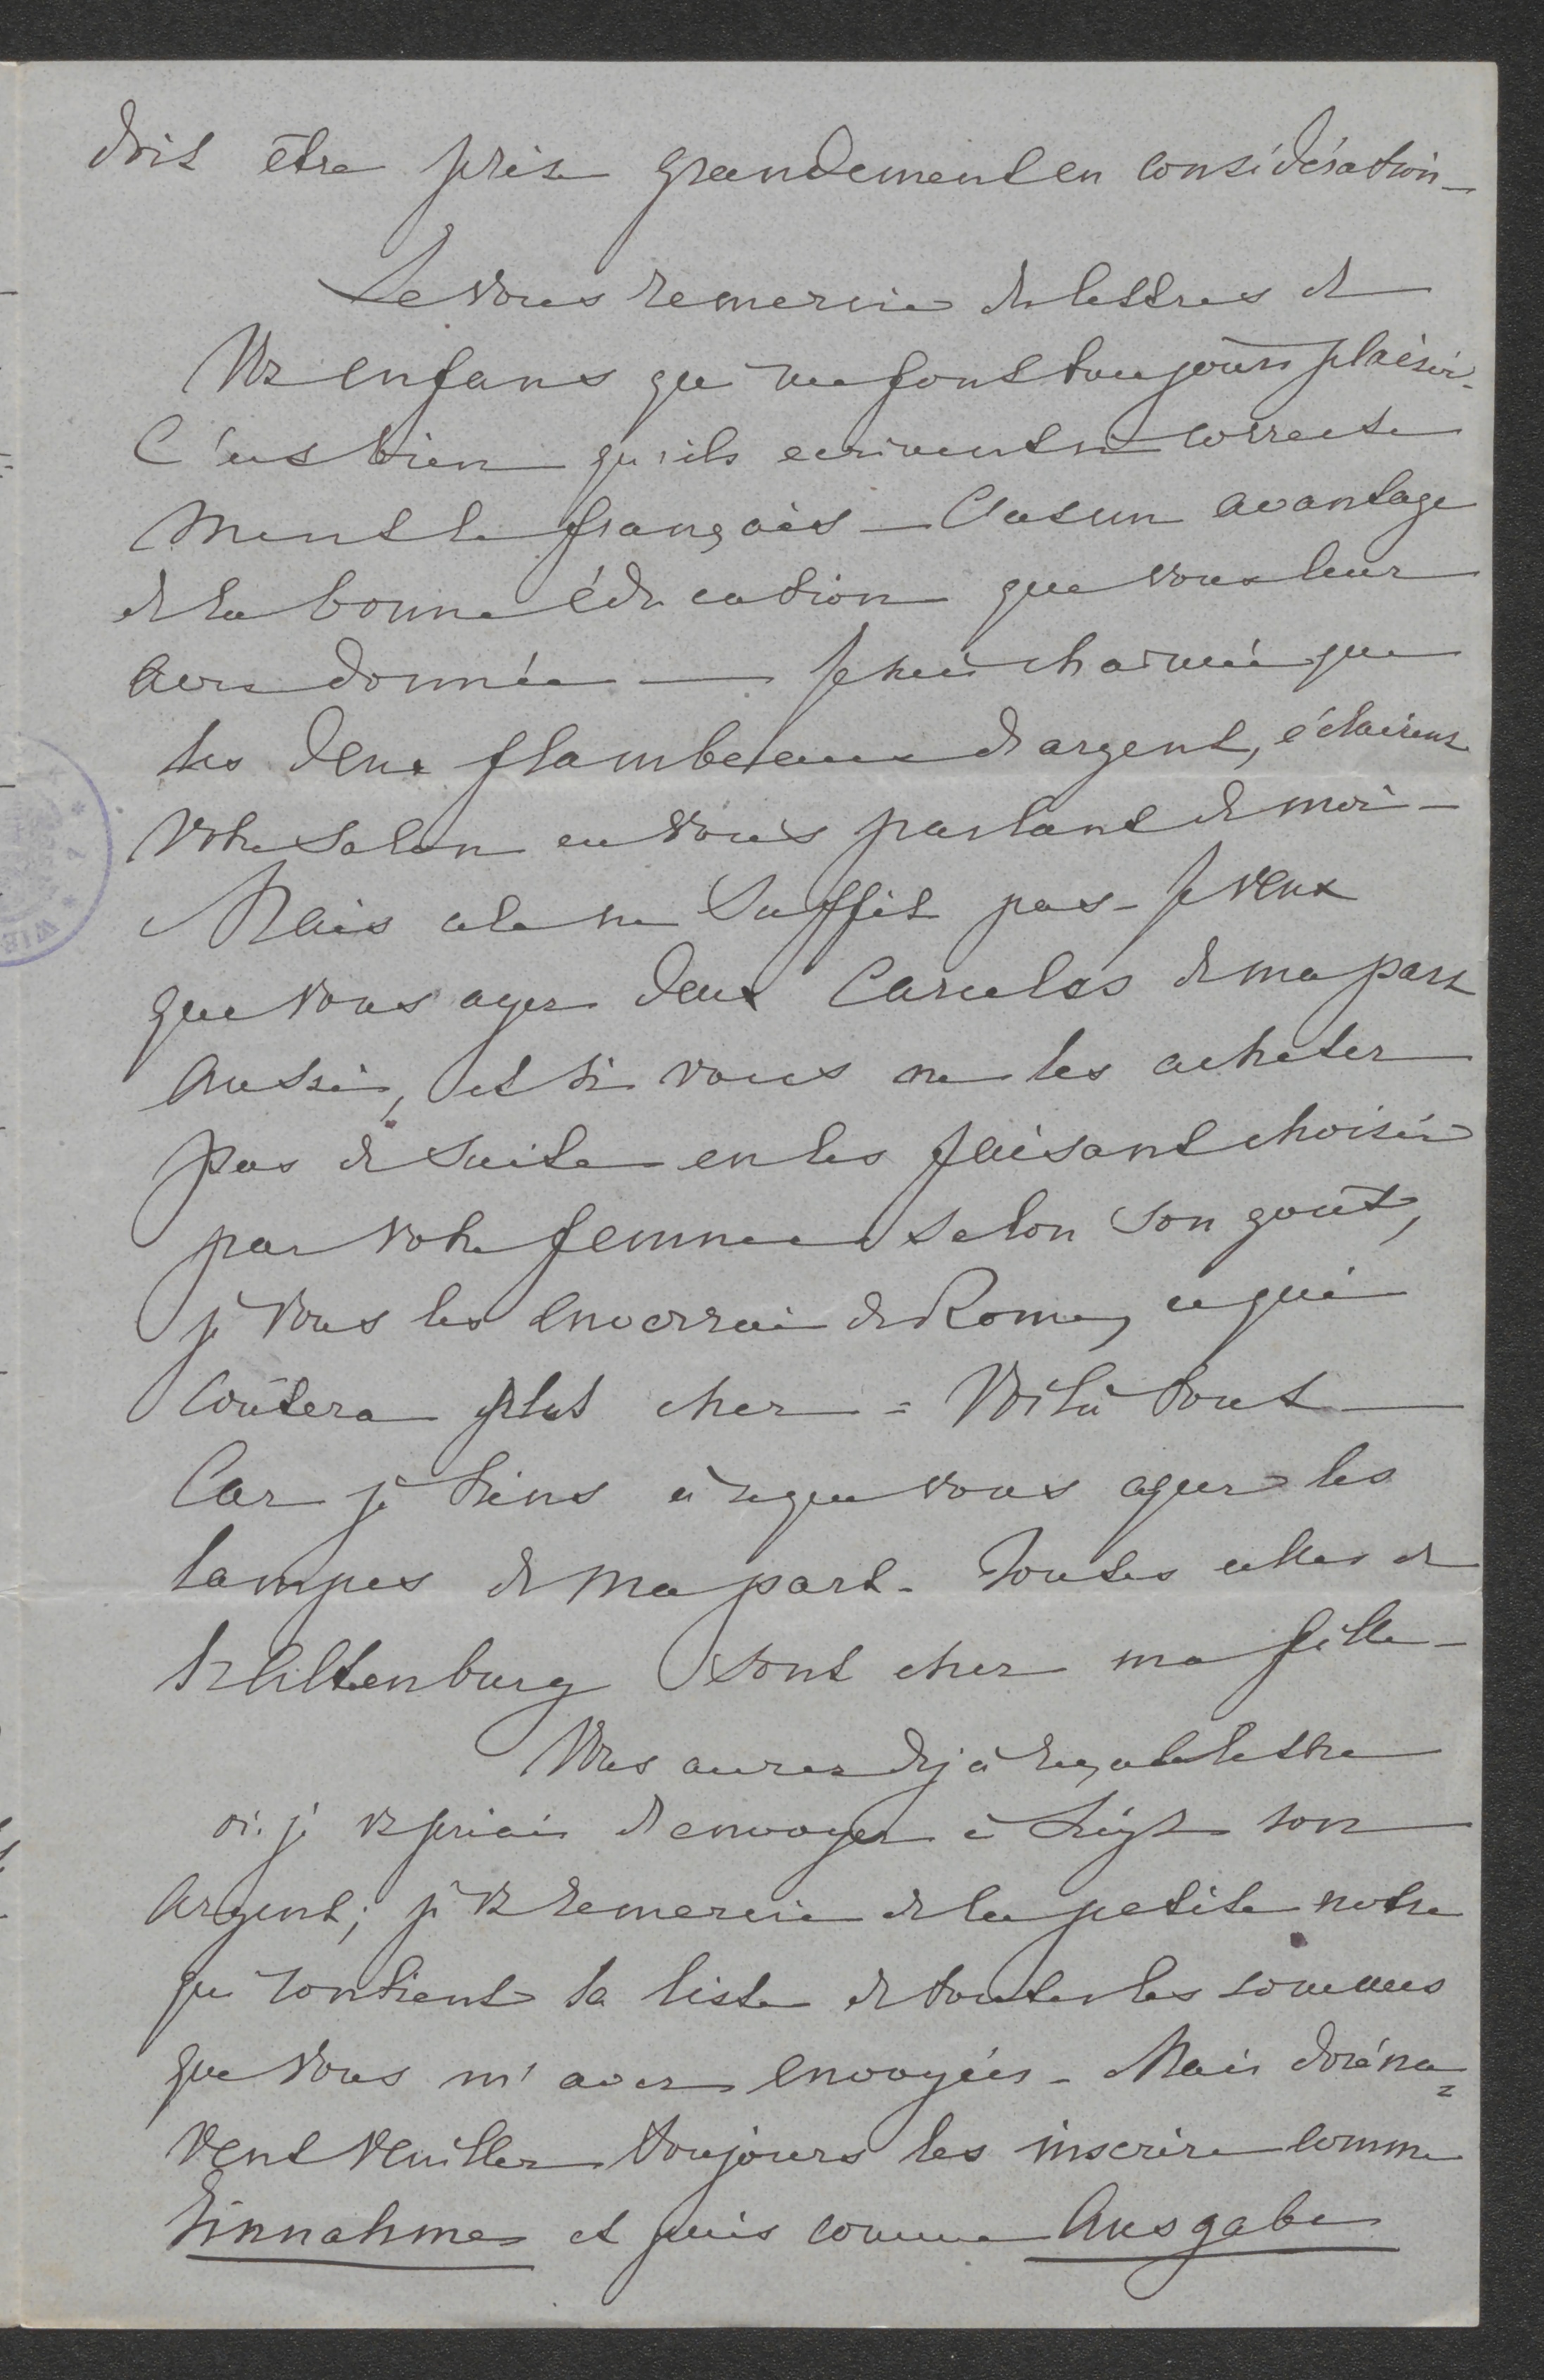 doit être prise grandement en considération –
Je vous remercie des lettres de
Vos enfans qui me font toujours plaisir.
C'est bien qu'ils ecrivent si correcte
ment le français – C'est un avantage
de la bonne éducation que vous leur
avez donnée — Je suis charmée que
les deux flambeaux d'argent, éclairent
votre salon en vous parlant de moi –
Mais cela ne suffit pas – Je veux
que vous ayez deux Carcelas de ma part
aussi, et si vous ne les achetez
pas de suite en les faisant choisir
par votre femme selon son goût,
je vous les enverrai de Rome, ce qui
coûtera plus cher = Voilà tout —
Car je tiens à ce que vous ayez les
lampes de ma part. Toutes celles de
d'Altenburg sont chez ma fille –
Vous aurez déjà reçu la lettre
où je vs priais d'envoyer à son
argent; je vs remercie de la petite note
qui contient la liste de toutes les sommes
que vous m'avez envoyées – Mais doréna=
vent veuillez toujours les inscrire comme
Einnahme et puis comme Ausgabe
WIE